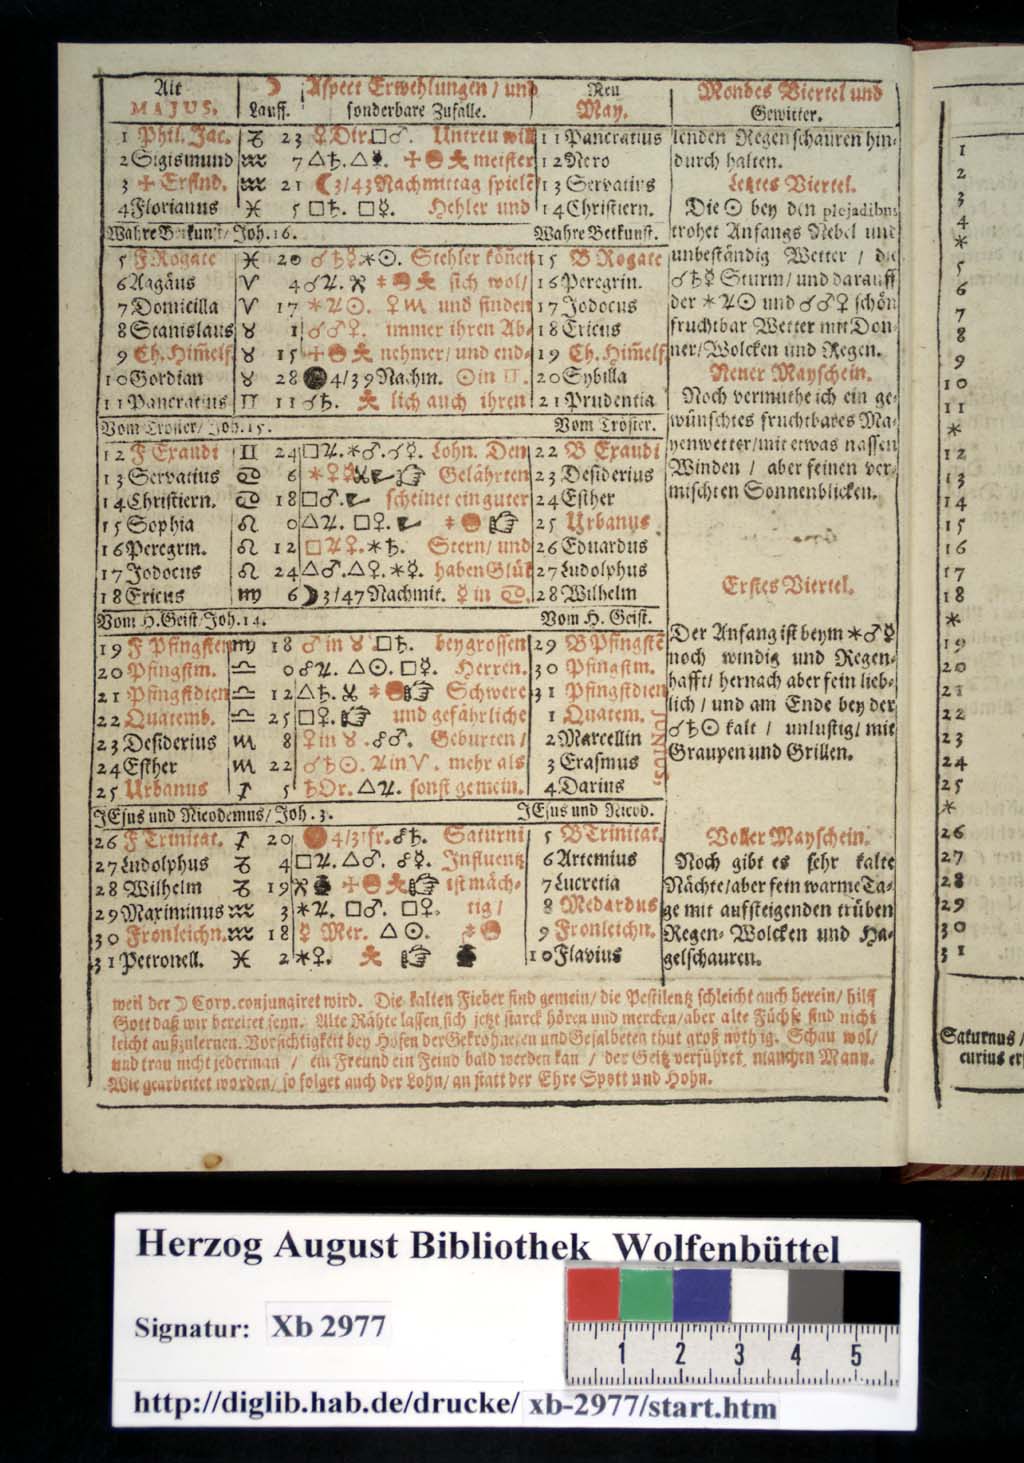 Alt ☽ Aspect Erwehlungen / und Neu Mondes Viertel und
MAJUS. Lauff. sonderbare Zufälle. May. Gewitter.
1 Phil. Jac. ♑ 23 ♀Dir.□♂. Untreu will 11 Pancratius lenden Regenschauren hin-
2 Sigismund ♒ 7 △♄. meister 12 Nero durch halten.
3 ♒ 21 ☾3/43 Nachmittag spiele 13 Servatius Letztes Viertel.
4 Florianus ♓ 5 □♄. □☿. Hehler und 14 Christiern. Die ☉ bey den plejadibus
Joh. 16. Wahre Betkunst. trohet Anfangs Nebel und
5 F Rogate ♓ 20 ♂♄☿✶☉. Stehler können 15 B Rogate unbeständig Wetter / die
6 ♈ 4 sich wol / 16 Peregrin. ☌♄☿ Sturm / und darauff
7 Domicilla ♈ 17 ✶♃☉. ♀♏ und finden 17 Jodocus der ✶♃☉ und ☌♂♀ schön
8 Stanislaus ♉ 1 ☌♂♀. immer ihren Ab- 18 Ericus fruchtbar Wetter mit Don-
9 Ch. Him̃elf ♉ 15 nehmer / und end- 19 Ch. Him̃elf ner / Wolcken und Regen.
10 Gordian ♉ 28 4/39 Nachm. ☉in ♊. 20 Sybilla Neuer Mayschein.
11 Pancratius ♊ 11 ☌♄. lich auch ihren 21 Prudentia Noch vermuthe ich ein ge-
Vom Tröster / Joh. 15. Vom Tröster. wünschtes fruchtbares Ma-
12 F Exaudi ♊ 24 □♃.✶♂.☌☿. Lohn. Den 22 B Exaudi yenwetter / mit etwas nassen
13 Servatius ♋ 6 Gelährten 23 Desiderius Winden / aber feinen ver-
14 Christiern. ♋ 18 □♂. scheinet ein guter 24 Esther mischten Sonnenblicken.
15 Sophia ♌ 0 △♃. □♀. 25 Urbanus
16 Peregrin. ♌ 12 □♃♀.✶♄. Stern / und 26 Eduardus
17 Jodocus ♌ 24 △♂.△♀.✶☿. haben Glük 27 Ludolphus Erstes Viertel.
18 Ericus ♍ 6 ☽3/47 Nachmit. ☿ in ♋. 28 Wilhelm
Vom H. Geist / Joh. 14. Vom H. Geist.
19 F Pfingsten ♍ 18 ♂ in ♉ .□♄. bey grossen 29 B Pfingstẽ Der Anfang ist beym ✶♂☿
20 Pfingstm. ♎ 0 ☍♃. △☉. □☿. Herren. 30 Pfingstm. noch windig und Regen-
21 Pfingstdien ♎ 12 △♄. Schwere 31 Pfingstdien hafft / hernach aber fein lieb-
22 Quatemb. ♎ 25 □♀. und gefährliche 1 Quatem. lich / und am Ende bey der
23 Desiderius ♏ 8 ♀in ♉ .☍♂. Geburten / 2 Marcellin ☌♄☉ kalt / unlustig / mit
24 Esther ♏ 22 ☌♄☉. ♃in ♈. mehr als 3 Erasmus Graupen und Grillen.
25 Urbanus ♐ 5 △♃. sonst gemein. 4 Darius
JEsus und Nicodemus / Joh. 3. JEsus und Nicod.
26 F Trinitat. ♐ 20 ☍♄. Saturni 5 B Trinitat. Voller Mayschein.
27 Ludolphus ♑ 4 □♃. △♂. ☍☿. Influentz 6 Artemius Noch gibt es sehr kalte
28 Wilhelm ♑ 19 ist mäch- 7 Lucretia Nächte / aber fein warme Ta-
29 Maximinus ♒ 3 ✶♃. □♂. □♀. tig / 8 Medardus ge mit aufsteigenden trüben
30 Fronleichn. ♒ 18 ☿ Mer. △ ☉. 9 Fronleichn. Regen- Wolcken und Ha-
31 Petronell. ♓ 2 ✶♀. 10 Flavius gelschauren.
weil der ☽ Corp. conjungiret wird. Die kalten Fieber sind gemein / die Pestilentz schleicht auch herein / hilff
Gott daß wir bereitet seyn. Alte Rähte lassen sich jetzt starck hören und mercken / aber alte Füchse sind nicht
leicht außzulernen. Vorsichtigkeit bey Höfen der Gekröhneten und Gesalbeten thut groß nöthig. Schau wol /
und trau nicht jederman / ein Freund ein Feind bald werden kan / der Geitz verführet manchen Mann.
Wie gearbeitet worden / so folget auch der Lohn / an statt der Ehre Spott und Hohn.
1
2
3
4
*
5
6
7
8
9
10
11
*
12
13
14
15
16
17
18
*
19
20
21
22
23
24
25
*
26
27
28
29
30
31
Saturnus /
curius er
Herzog August Bibliothek Wolfenbüttel
Signatur: Xb 2977
1 2 3 4 5
http://diglib.hab.de/drucke/ xb-2977/start.htm